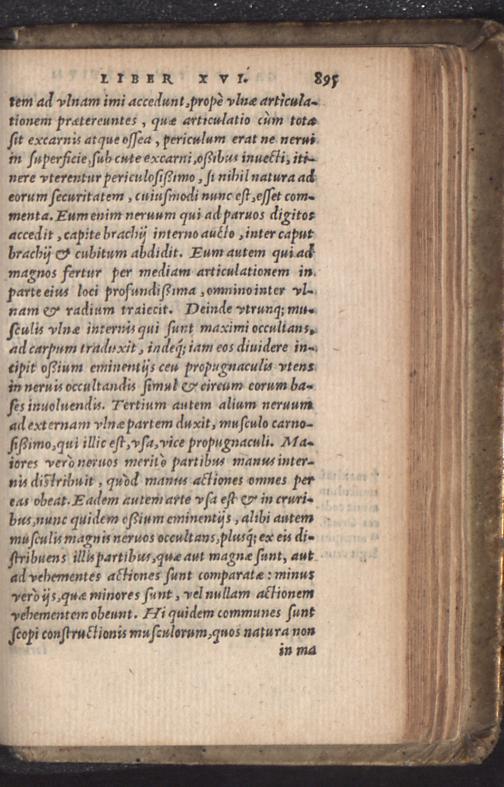 LIBER XVI. 895
tem ad vlnam imi accedunt, propè vlnæ articula-
tionem prætereuntes, quæ articulatio cùm tota
sit excarnis atque ossea, periculum erat ne nerui
in superficie, sub cute excarni, oßibus inuecti, iti-
nere vterentur periculosißimo, si nihil natura ad
eorum securitatem, cuiusmodi nunc est, esset com-
menta. Eum enim neruum qui ad paruos digitos
accedit, capite brachij interno aucto, inter caput
brachij & cubitum abdidit. Eum autem qui ad
magnos fertur per mediam articulationem in
parte eius loci profundißima, omnino inter vl-
nam & radium traiecit. Deinde vtrunq; mu-
sculis vlnæ internis qui sunt maximi occultans,
ad carpum traduxit, indeq́; iam eos diuidere in-
cipit oßium eminentijs ceu propugnaculis vtens
in neruis occultandis simul & eireum eorum ba-
ses inuoluendis. Tertium autem alium neruum
ad externam vlnæ partem duxit, musculo carno-
sißimo, qui illic est, vsa, vice propugnaculi. Ma-
iores verò neruos meritò partibus manus inter-
nis distribuit, quòd manus actiones omnes per
eas obeat. Eadem autem arte vsa est & in cruri-
bus, nunc quidem oßium eminentijs, alibi autem
musculis magnis neruos occultans, plusq́; ex eis di-
stribuens illis partibus, quæ aut magnæ sunt, aut
ad vehementes actiones sunt comparatæ: minus
verò ijs, quæ minores sunt, vel nullam actionem
vehementem obeunt. Hi quidem communes sunt
scopi constructionis musculorum, quos natura non
in ma